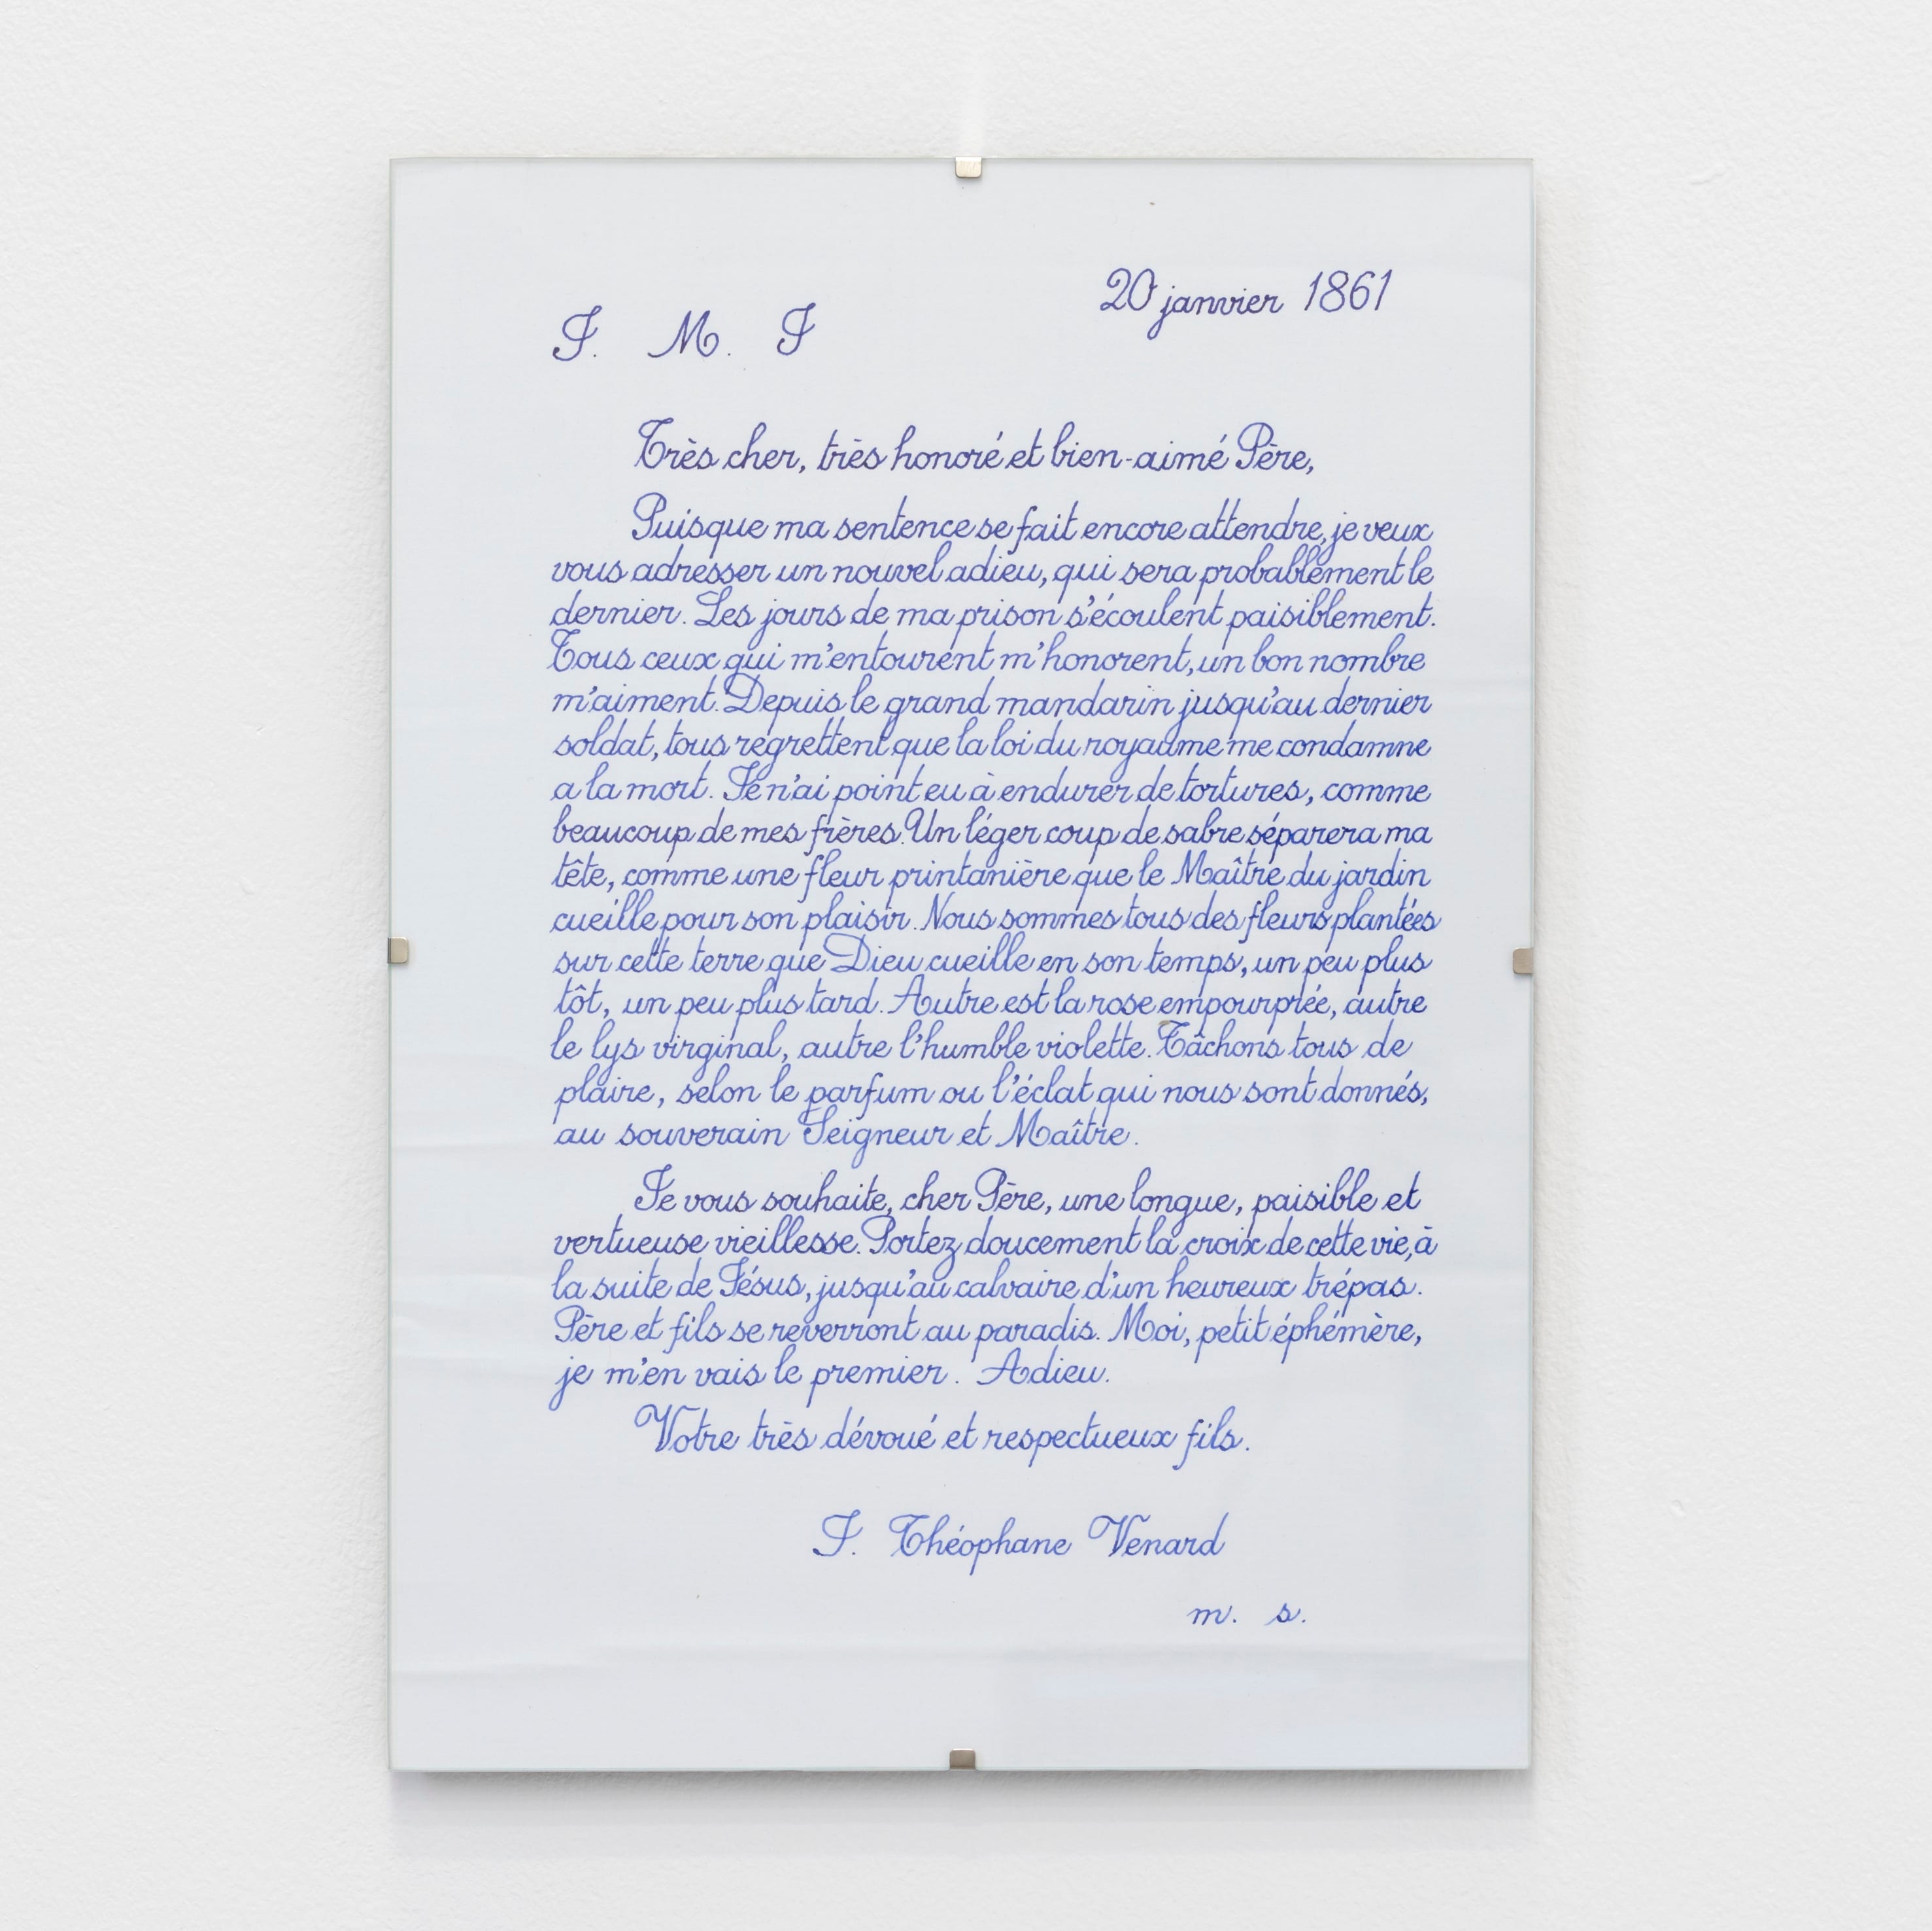 20 janvier 1861
J. M. J
Très cher, très honoré et bien-aimé Père,
Puisque ma sentence se fait encore attendre, je veux
vous adresser un nouvel adieu, qui sera probablement le
dernier. Les jours de ma prison s'écoulent paisiblement.
Tous ceux qui m'entourent m'honorent, un bon nombre
m'aiment. Depuis le grand mandarin jusqu'au dernier
soldat, tous regrettent que la loi du royaume me condamne
a la mort. Je n'ai point eu à endurer de tortures, comme
beaucoup de mes frères. Un léger coup de sabre séparera ma
tête, comme une fleur printanière que le Maître du jardin
cueille pour son plaisir. Nous sommes tous des fleurs plantées
sur cette terre que Dieu cueille en son temps, un peu plus
tôt, un peu plus tard. Autre est la rose empourprée, autre
le lys virginal, autre l'humble violette. Tâchons tous de
plaire, selon le parfum ou l'éclat qui nous sont donnés,
au souverain Seigneur et Maître.
Je vous souhaite, cher Père, une longue, paisible et
vertueuse vieillesse. Portez doucement la croix de cette vie, à
la suite de Jésus, jusqu'au calvaire d'un heureux trépas.
Père et fils se reverront au paradis. Moi, petit éphémère,
je m'en vais le premier. Adieu.
Votre très dévoué et respectueux fils.
J. Théophane Venard
m. s.